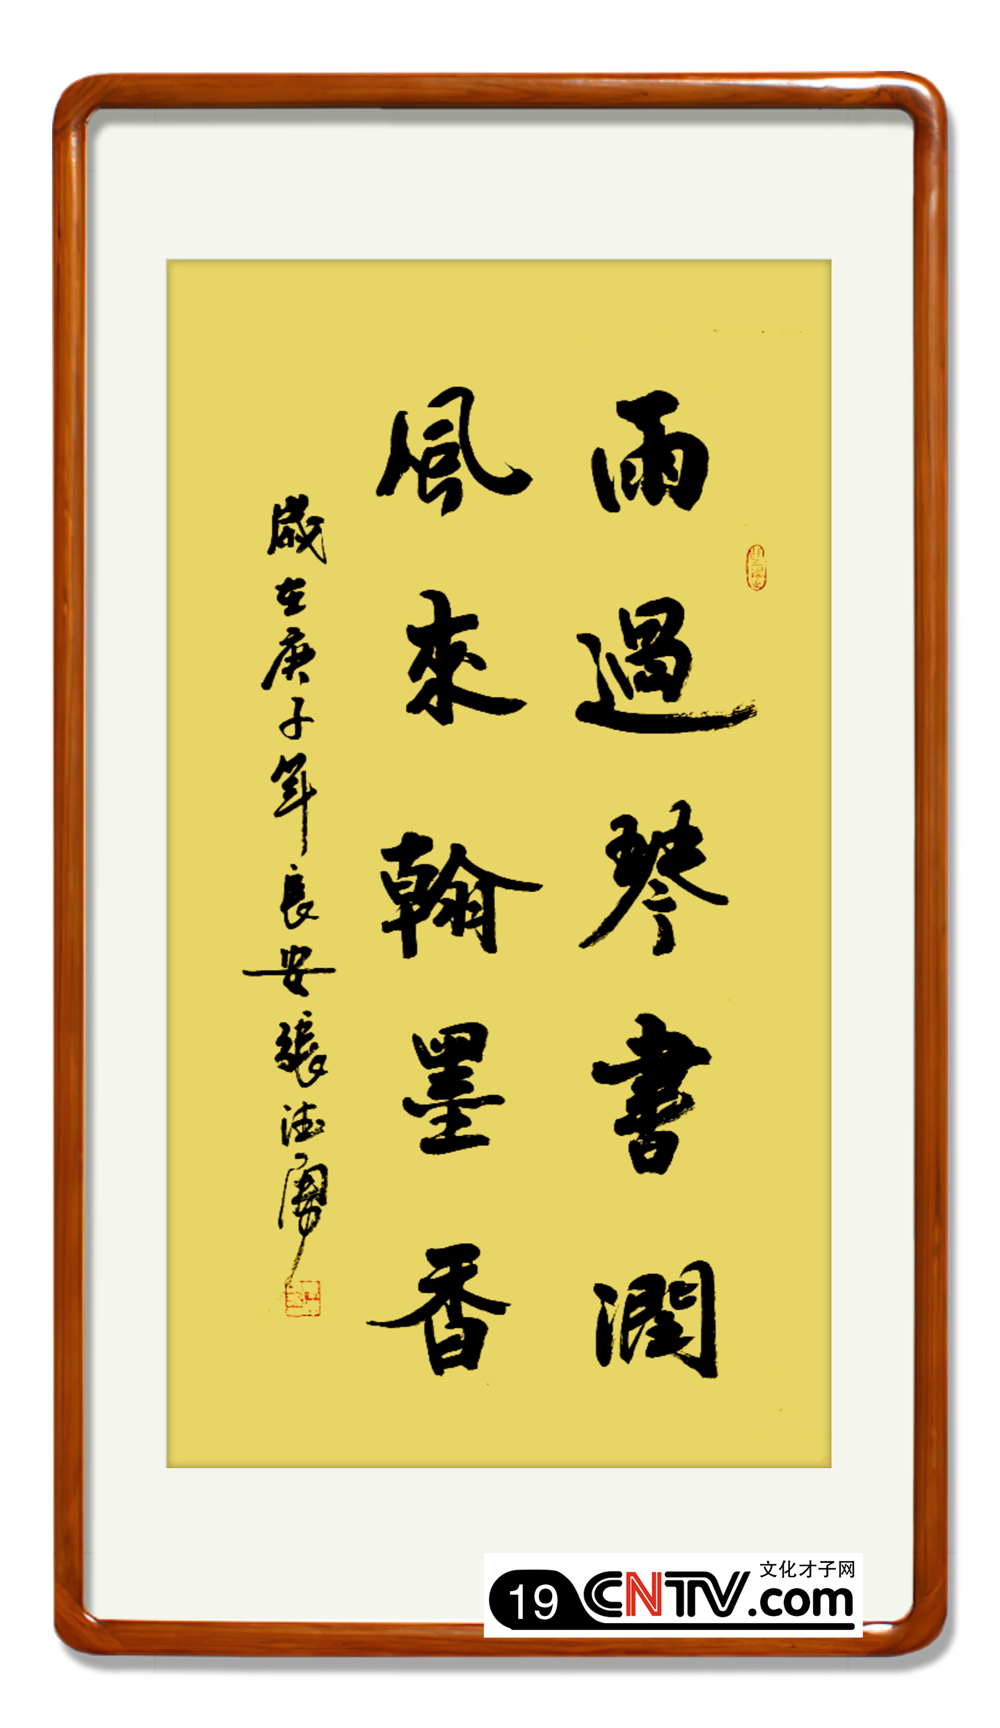 雨過琴書潤
風來翰墨香
歲在庚子年長安張法勇
文化才子网
19 CNTV.com